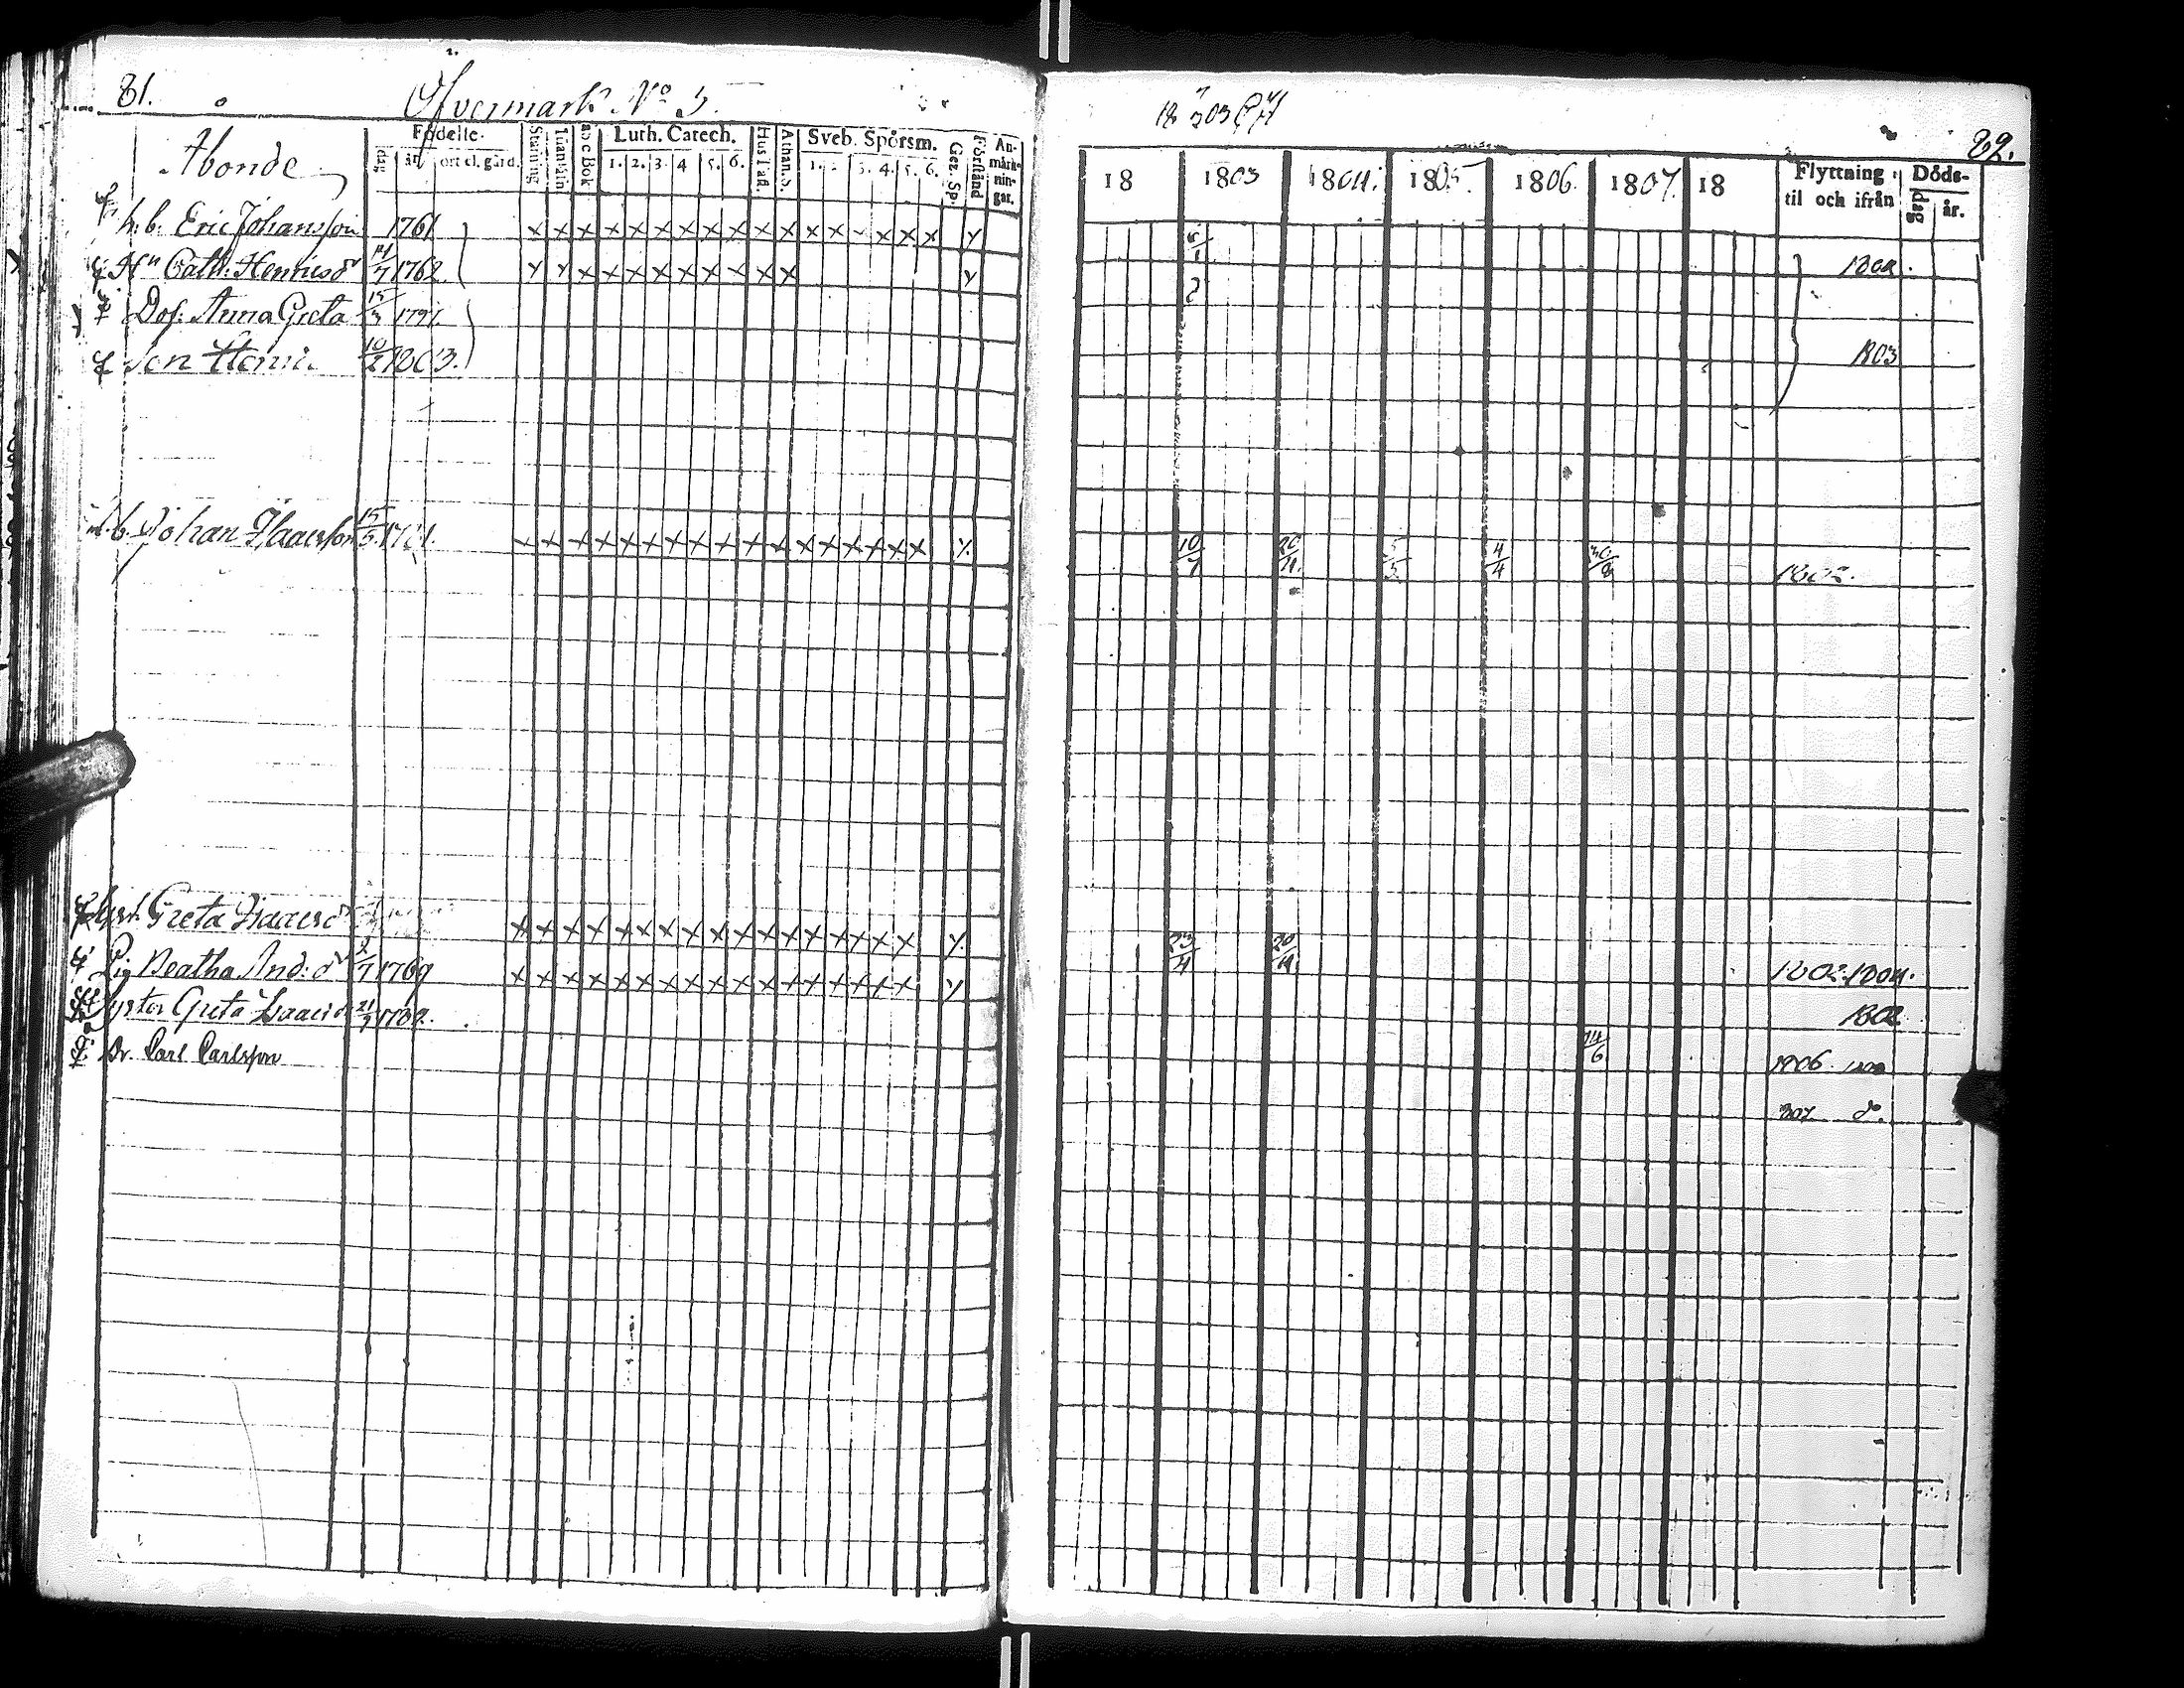 81.
Öfvermark No 5.
Abonde
Födelse-
dag
år
ort el. gård.
Stafning
Innanläsn
a b c Bok
Luth. Catech.
1. 2. 3. 4 5. 6.
Hus Tafl.
Athan. S.
Sveb. Spörsm.
1. 2 3. 4. 5. 6.
Gez. Sp.
Förstånd
An-
märk-
nin-
gar.
h. b. Eric Johansson 1761 x x x x x x x x x x x x x x x x x
Hu Cath: Henricsdr 14/7 1762. x x x x x x x x x x x
Dot: Anna Greta 15/3 1797.
Son Henric 10/2 1803.
b. Johan Isaacsson x x x x x x x x x x x x x x x x x
Greta Isaacsdr x x x x x x x x x x x x x x x x x
Pig Beatha And: dr 1769 x x x x x x x x x x x x x x x x x
Syster Greta Isaacsdr
Dr. Carl Carlsson
82.
18 1803 1804. 1805. 1806. 1807. 18
Flyttning
til och ifrån
Döds-
dag
år.
1803
10/7 20/4. 5/5 4/4 30/8 1802.
23/4 20/4 1802. 1804.
1802
14/6 1806.
807 do.